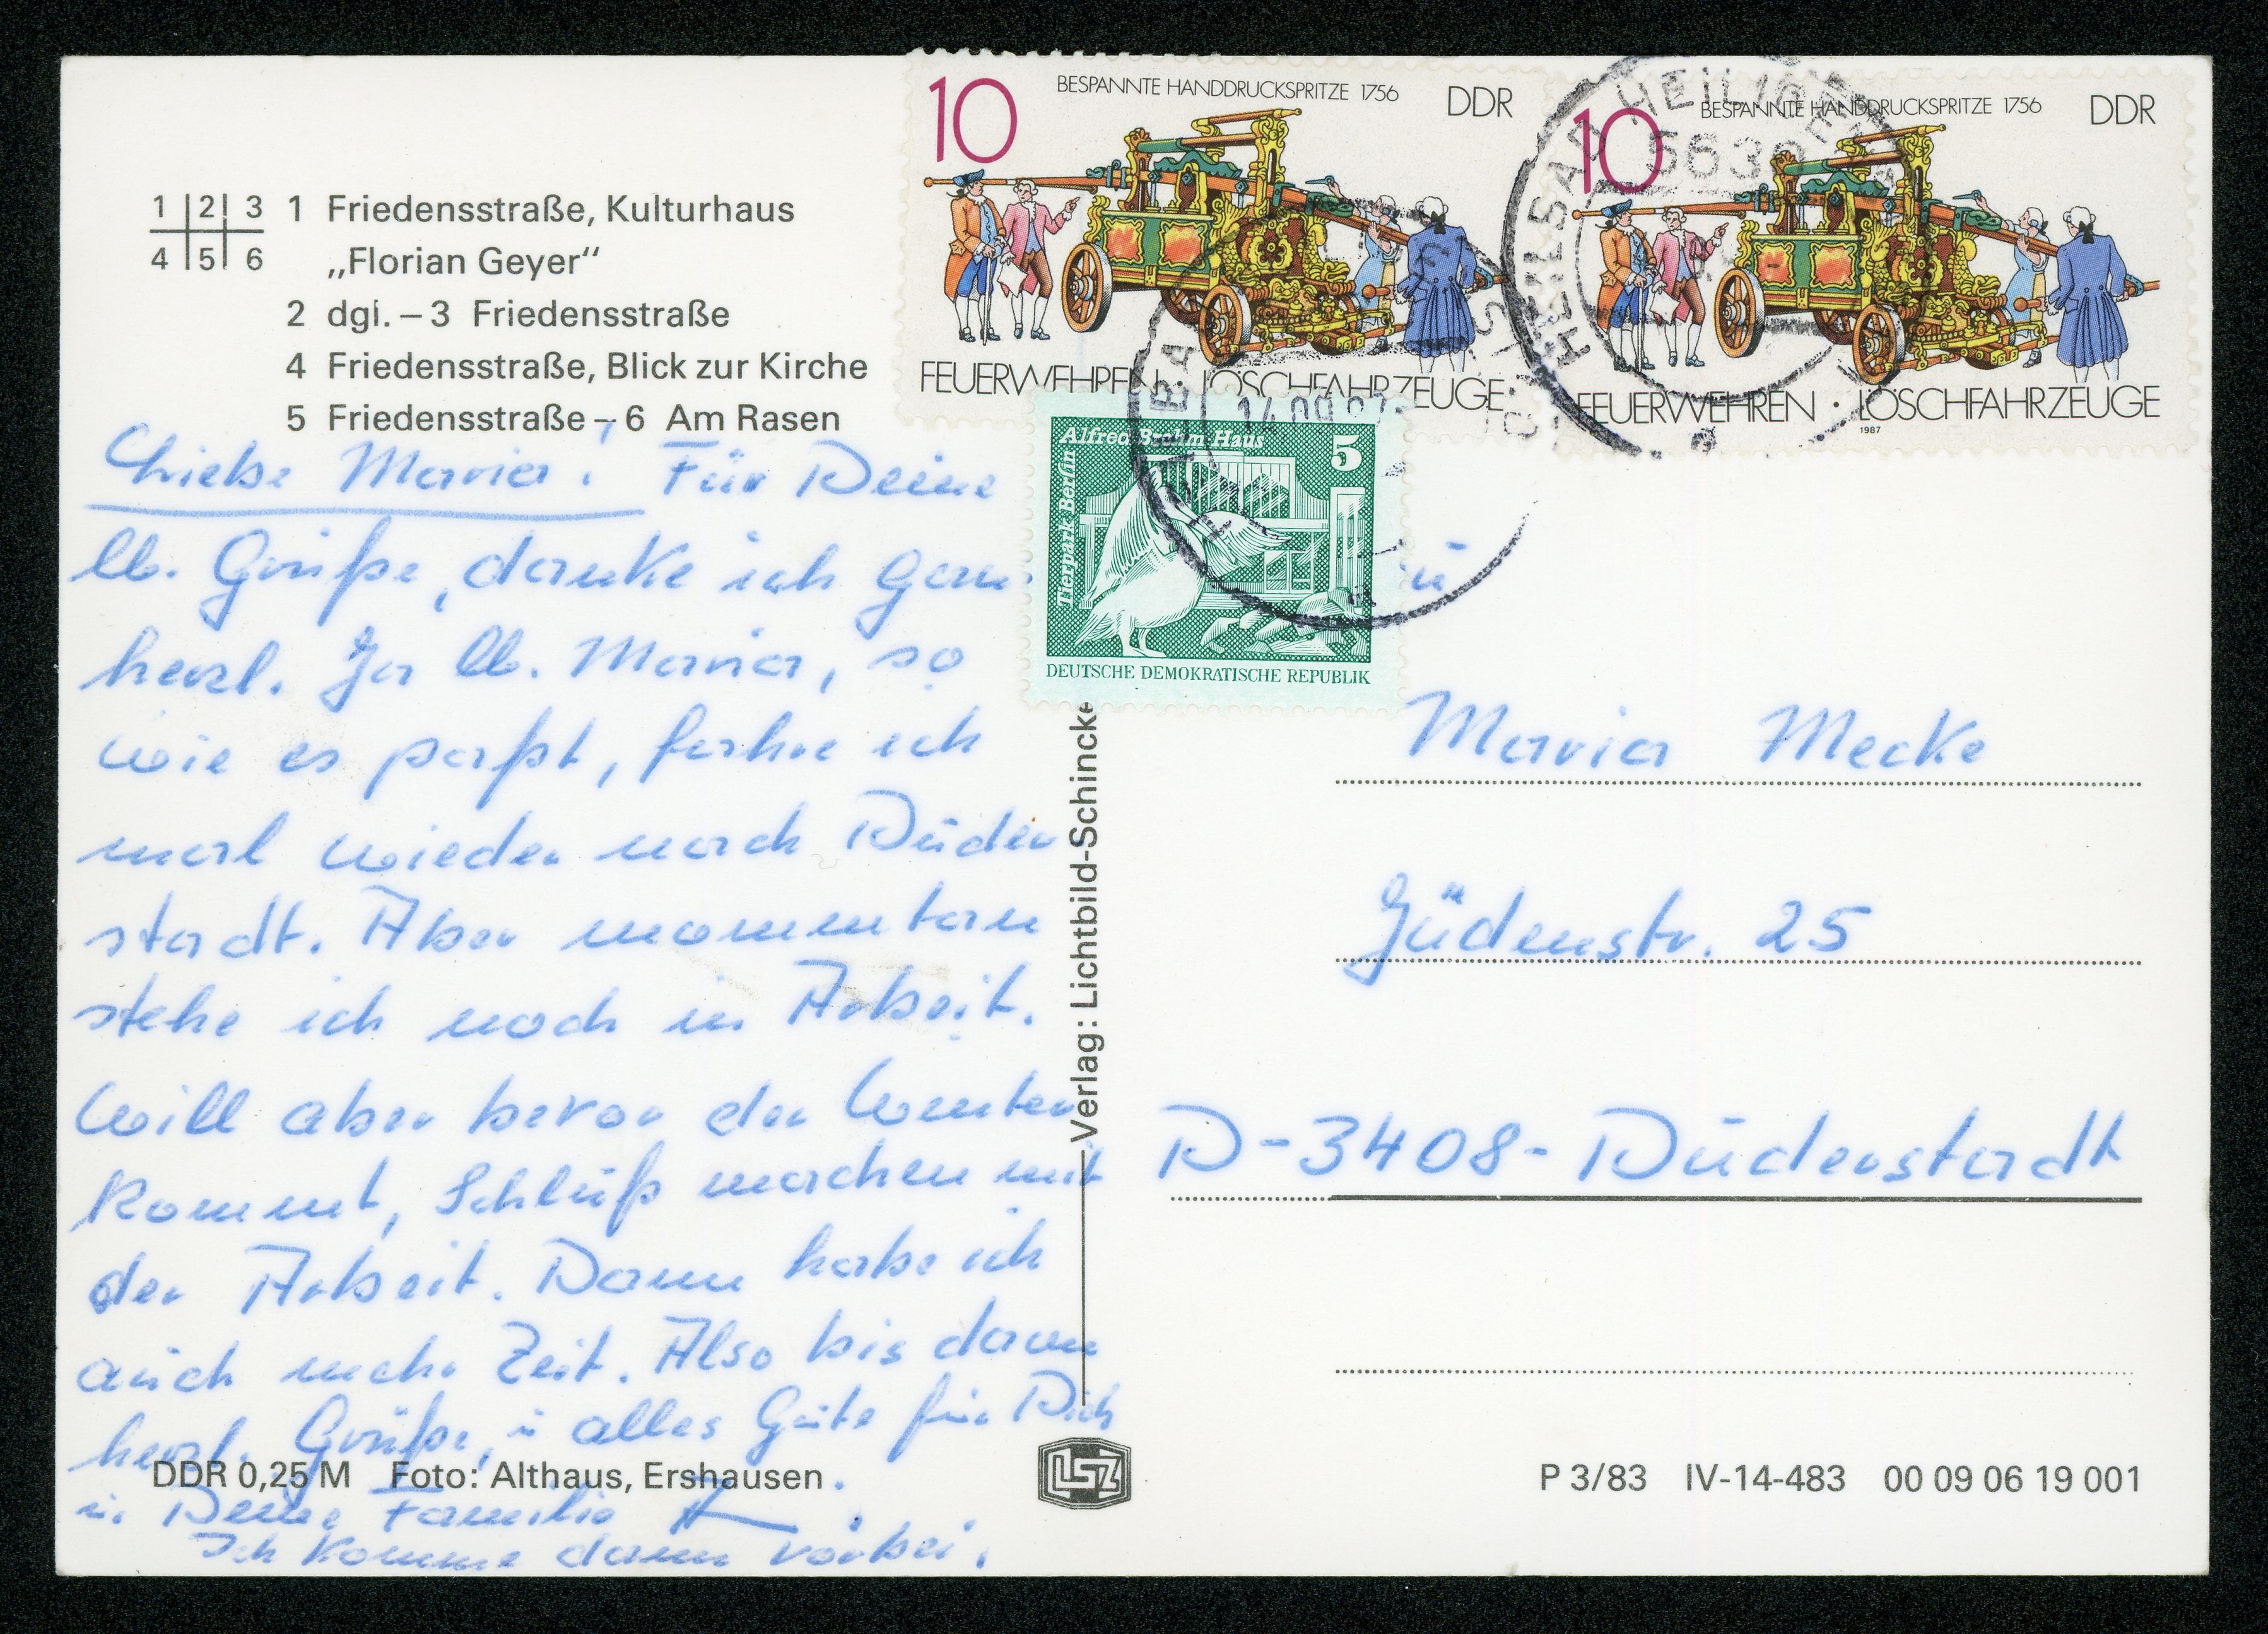 1 2 3
4 5 6
1 Friedensstraße, Kulturhaus
„Florian Geyer“
2 dgl. – 3 Friedensstraße
4 Friedensstraße, Blick zur Kirche
5 Friedensstraße – 6 Am Rasen
Liebe Maria! Für Deine
lb. Grüße, danke ich
herzl. Ja lb. Maria, so
wie es paßt, fahre ich
mal wieder nach Duder
stadt. Aber momentan
stehe ich noch in Arbeit.
Will aber bevor der Winter
kommt, Schluß machen mit
der Arbeit. Dann habe ich
auch mehr Zeit. Also bis dann
herzl. Grüße, u. alles Gute für Dich
u. Deine Familie
Ich komme dann vorbei.
DDR 0,25 M Foto: Althaus, Ershausen
Verlag: Lichtbild-Schincke
LSZ
10 BESPANNTE HANDDRUCKSPRITZE 1756 DDR
FEUERWEHREN · LÖSCHFAHRZEUGE
10 BESPANNTE HANDDRUCKSPRITZE 1756 DDR
FEUERWEHREN · LÖSCHFAHRZEUGE
1987
5630
Alfred Brehm Haus 5
Tierpark Berlin
DEUTSCHE DEMOKRATISCHE REPUBLIK
Maria Mecke
Jüdenstr. 25
D-3408- Duderstadt
P 3/83 IV-14-483 00 09 06 19 001